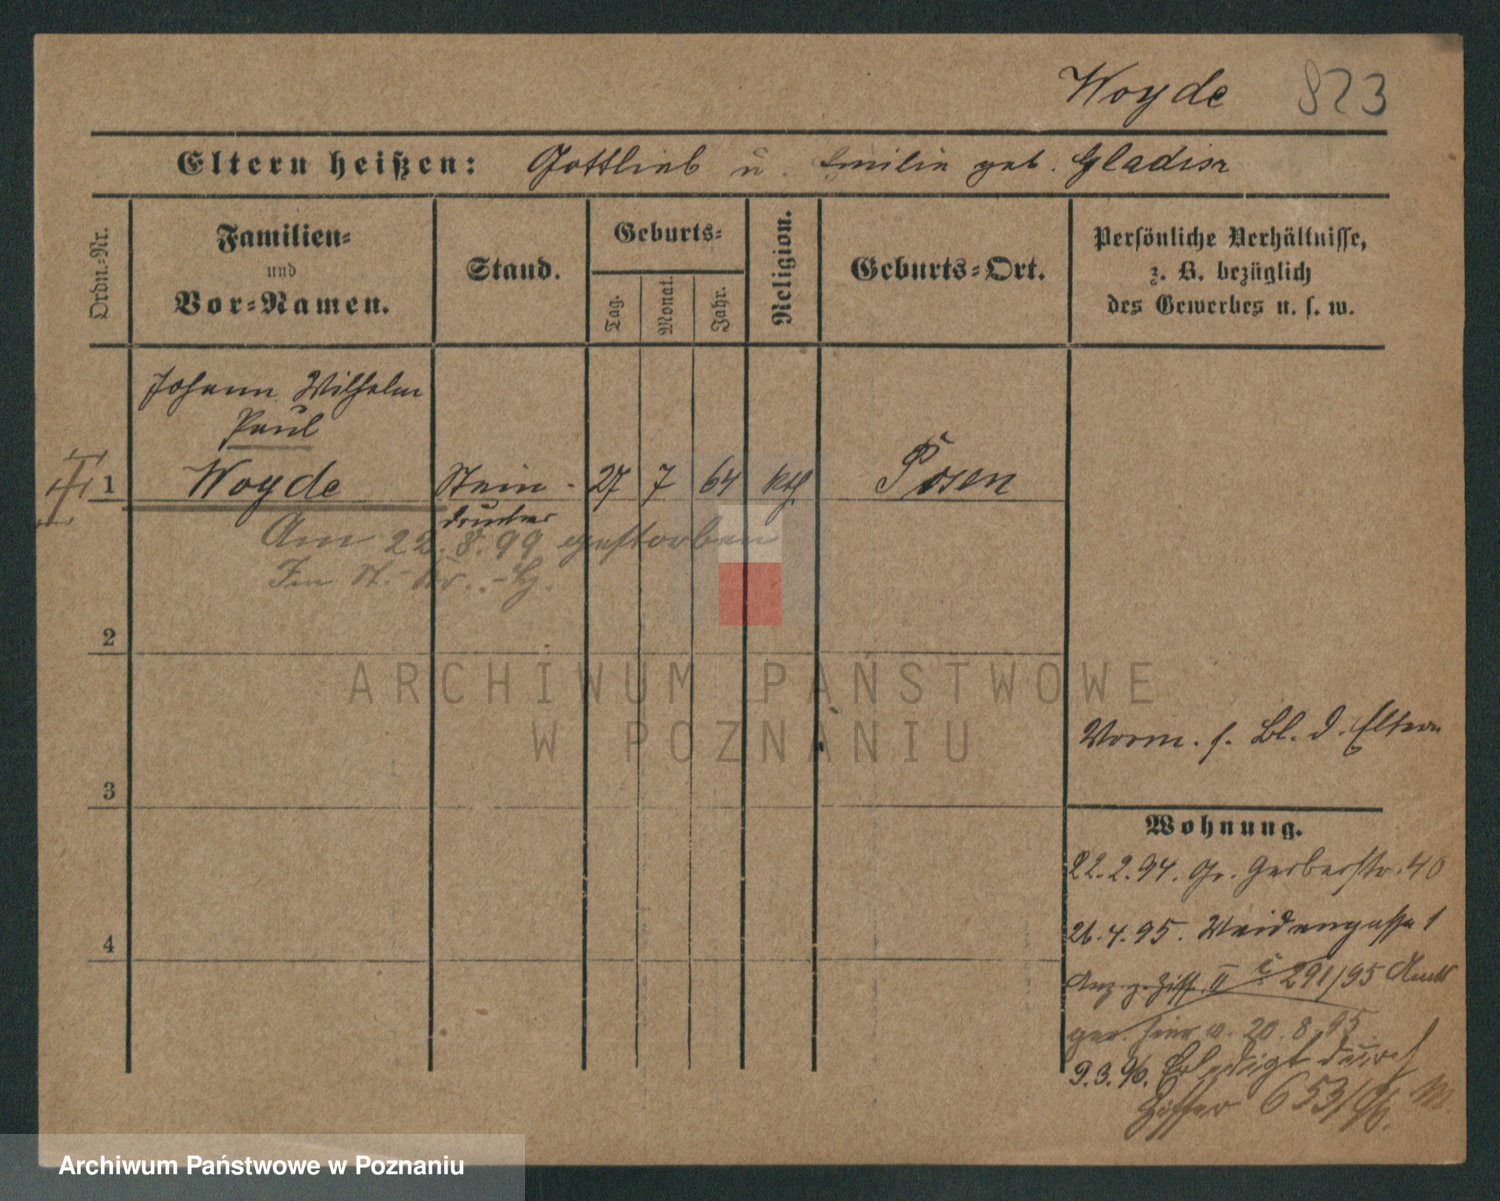 Woyde 823
Eltern heißen: Gottlieb u. Emilie geb. Gladisz
Ordn.-Nr.
Familien-
und
Vor-Namen.
Stand.
Geburts-
Tag.
Monat.
Jahr.
Religion.
Geburts-Ort.
Persönliche Verhältnisse,
z. B. bezüglich
des Gewerbes u. s. w.
Johann Wilhelm
Paul
1 Woyde Stein- 27 7 64 kth. Posen
drucker
Am 22.8.99 gestorben
Im St.-Kr.
2
ARCHIWUM PAŃSTWOWE
W POZNANIU
Vorm. s. Bl. d. Eltern
3
Wohnung.
22.2.94. Gr. Gerberstr. 40
26.4.95. Weidengasse 1
4
Anz. z. Ziff. II 291/95 Amts
ger. hier v. 20.8.95
9.3.96. Erledigt durch
Ziffer 653/96.
Archiwum Państwowe w Poznaniu